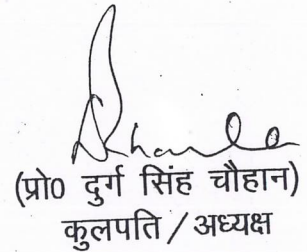 (प्रो0 दुर्ग सिंह चौहान)
कुलपति / अध्यक्ष